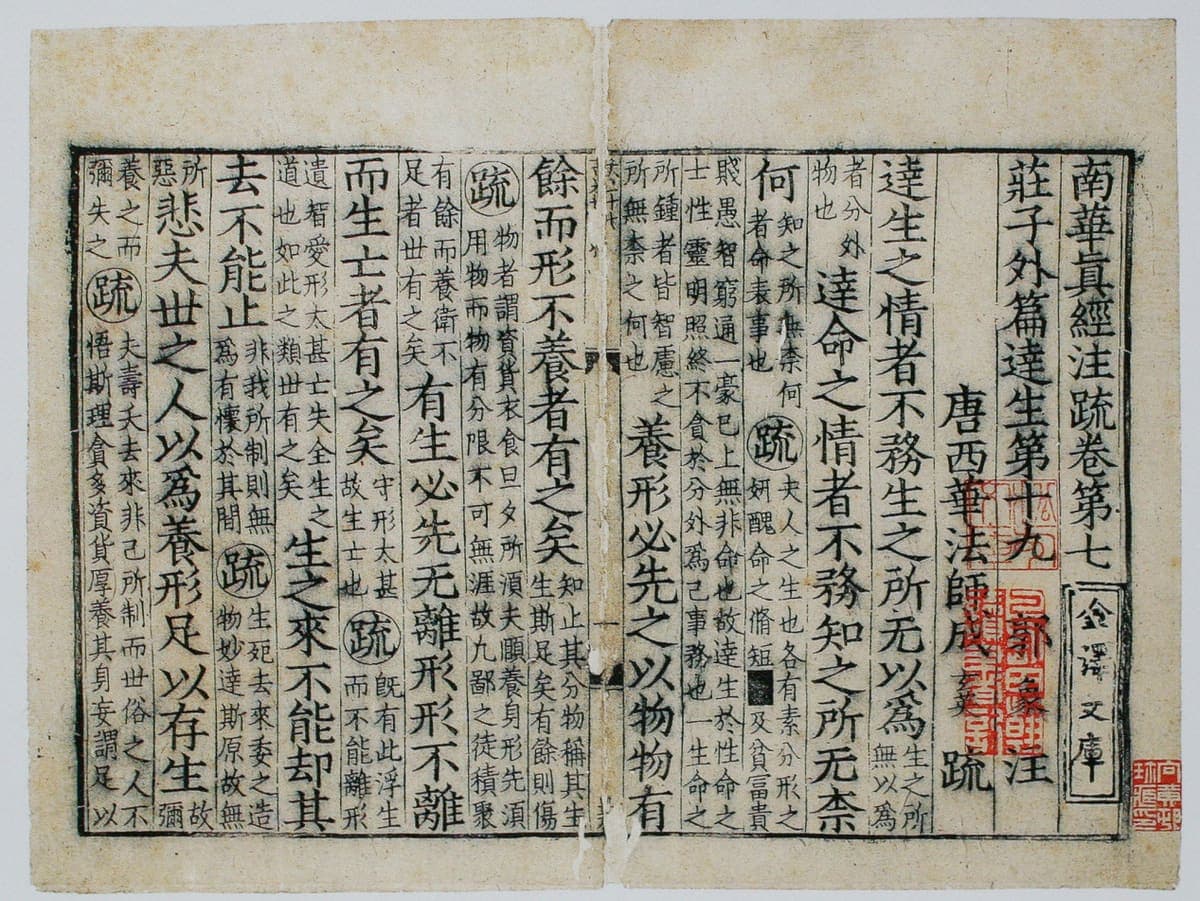 南華眞經注疏卷第七
金澤文庫
莊子外篇逹生第十九 郭象 注
唐西華法師成 疏
逹生之情者不務生之所无以爲 生之所無以爲
者分外物也 逹命之情者不務知之所无柰
何 知之所無柰何者命表事也 疏 夫人之生也各有素分形之妍醜命之脩短 及貧富貴
賤愚智窮通一豪已上無非命也故逹生於性命之士性靈明照終不貪於分外爲己事務也一生命之
所鍾者皆智慮之所無柰之何也 養形必先之以物物有
餘而形不養者有之矣 知止其分物稱其生生斯足矣有餘則傷
疏 物者謂資貨衣食旦夕所湏夫頤養身形先湏用物而物有分限不可無涯故凡鄙之徒積聚
有餘而養衛不足者世有之矣 有生必先无離形形不離
而生亡者有之矣 守形太甚故生亡也 疏 旣有此浮生而不能離形
遺智愛形太甚亡失全生之道也如此之類世有之矣 生之來不能却其
去不能止 非我所制則無爲有懷於其間 疏 生死去來委之造物妙逹斯原故無
所惡 悲夫世之人以爲養形足以存生 故彌
養之而彌失之 疏 夫壽夭去來非己所制而世俗之人不悟斯理貪多資貨厚養其身妄謂足以